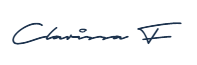 Clarissa F